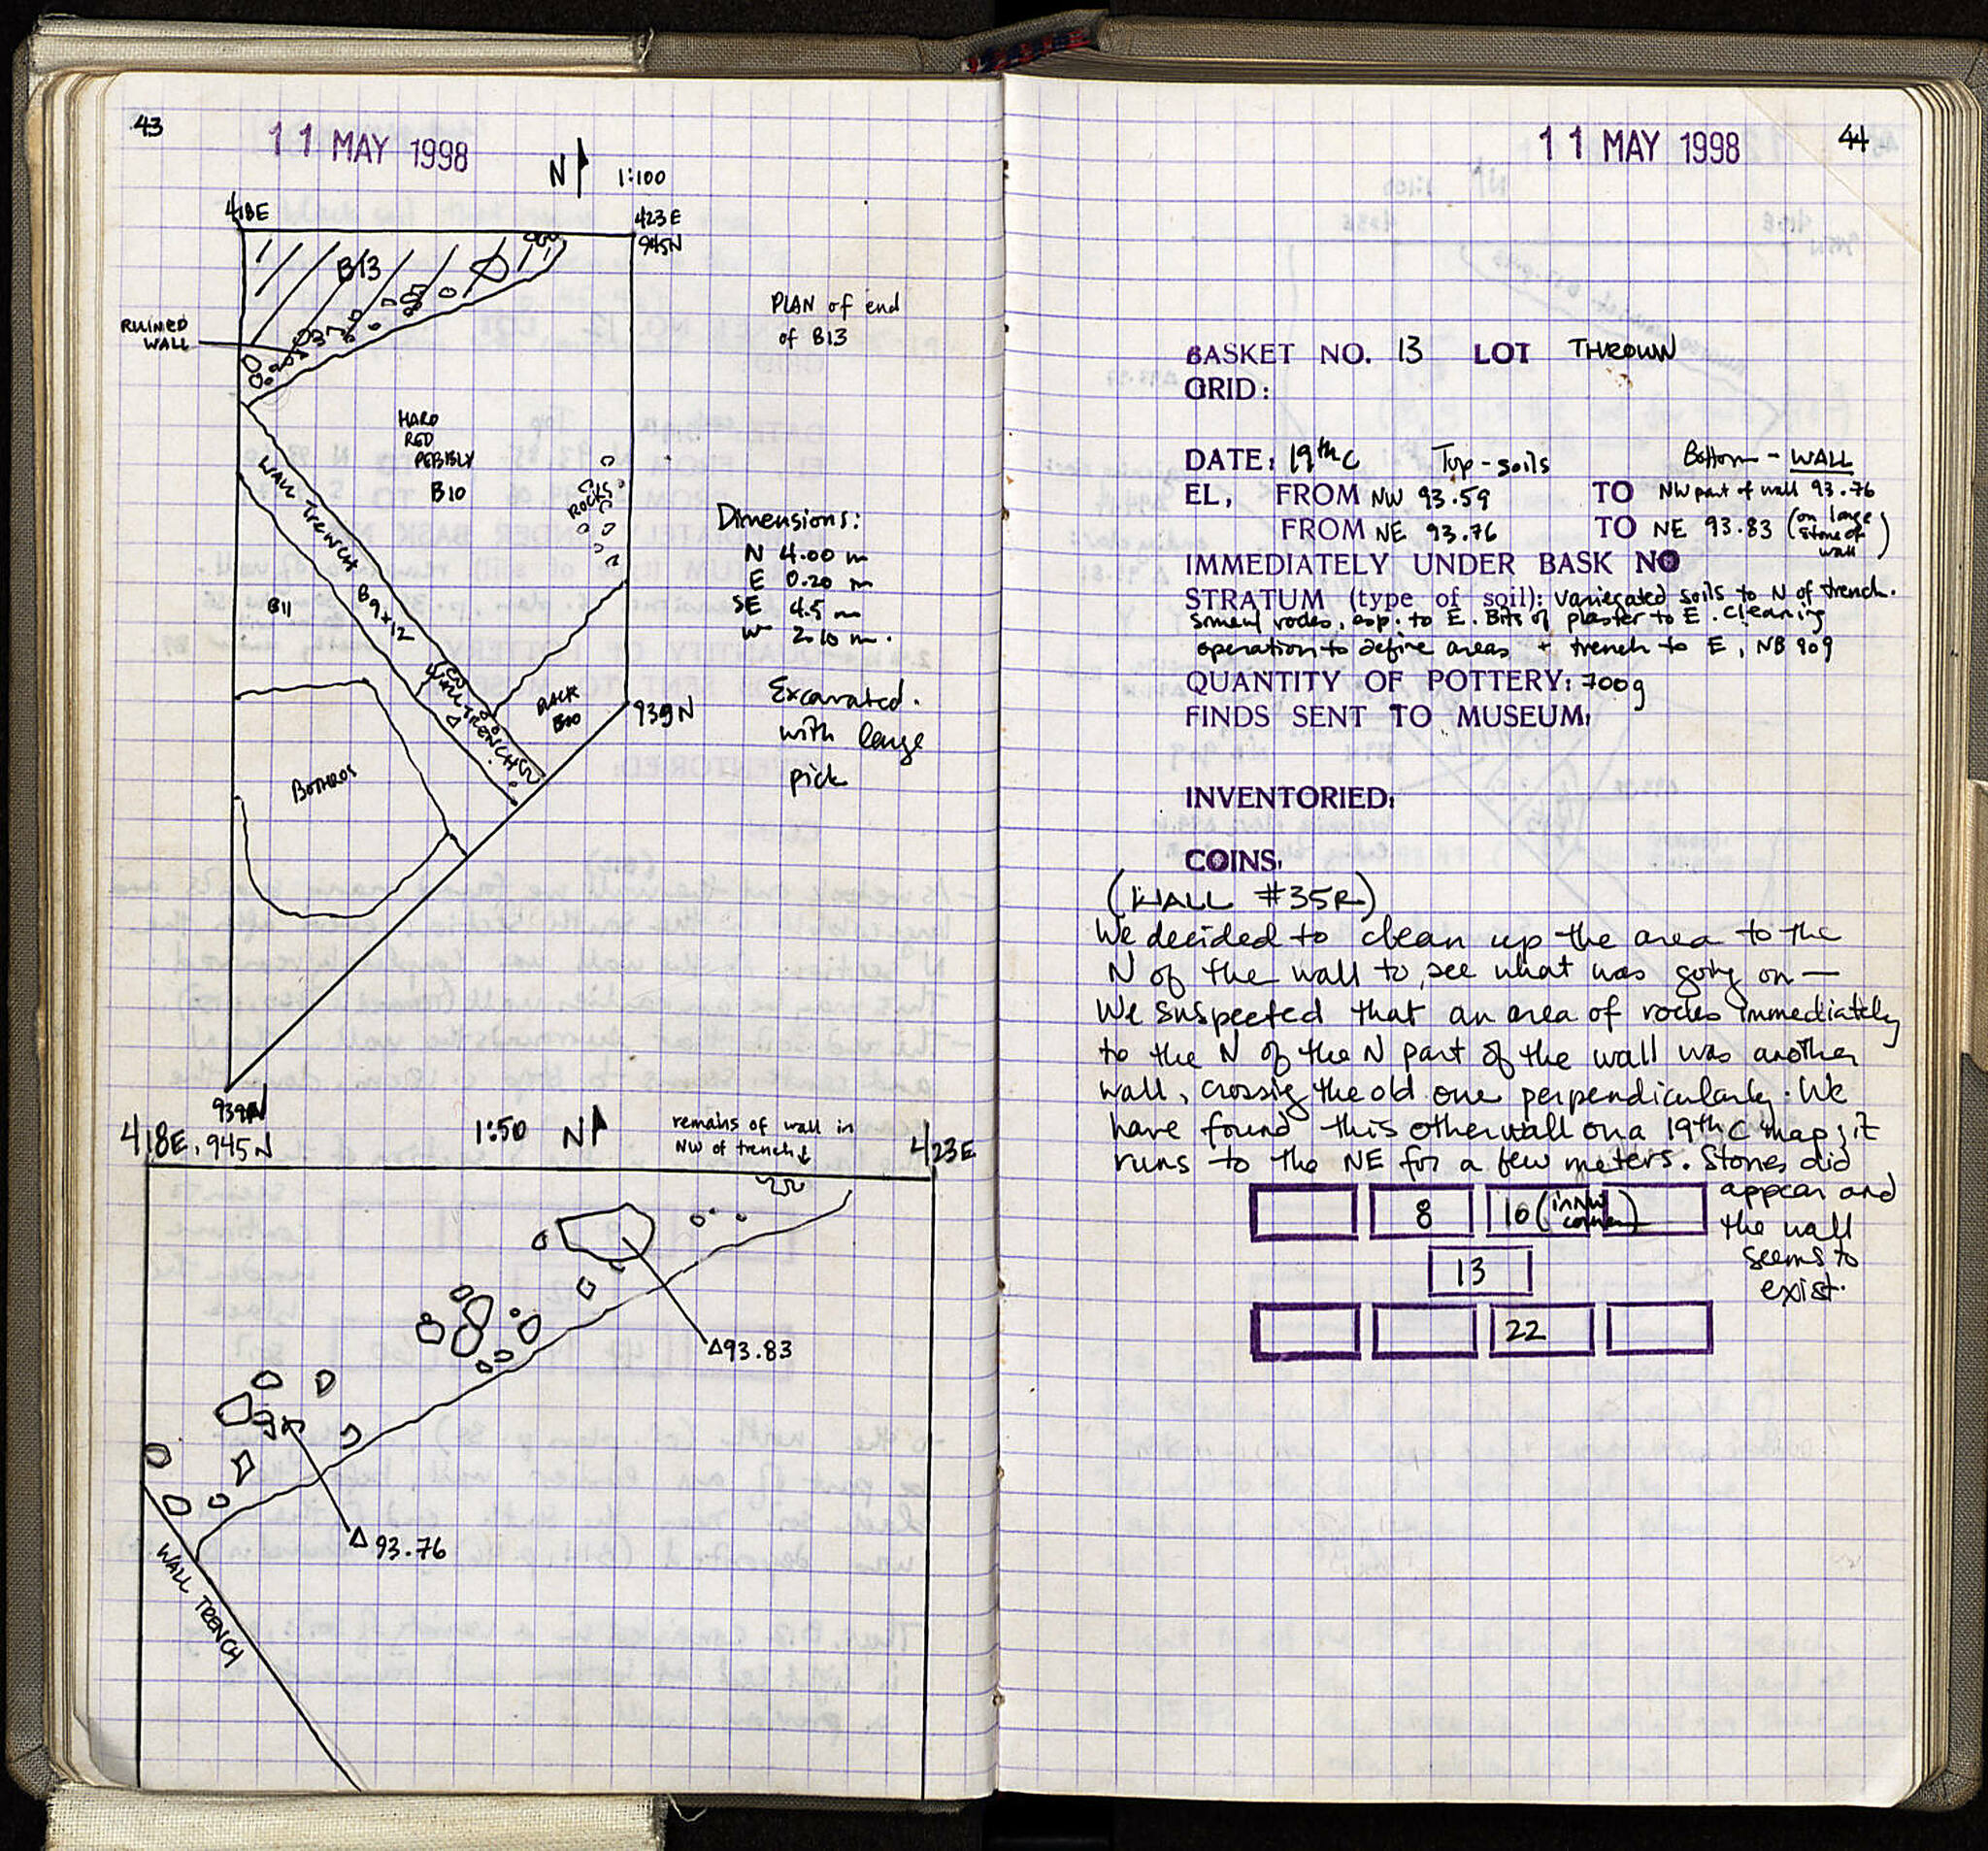 43
11 MAY 1998
N 1:100
418E
423E
945N
B13
RUINED
WALL
PLAN of end
of B13
HARD
RED
PEBBLY
B10
ROCKS
WALL TRENCH B9+12
B11
Dimensions:
N 4.00 m
E 0.20 m
SE 4.5 m
W 2.10 m.
WALL TRENCH
B10
939N
Excavated
with large
pick
BOTHROS
939N
418E, 945N
1:50 N
remains of wall in
NW of trench↓
423E
Δ93.83
Δ 93.76
WALL TRENCH
11 MAY 1998
44
BASKET NO. 13 LOT THROWN
GRID:
DATE: 19th C Top - soils Bottom - WALL
EL, FROM NW 93.59 TO NW part of wall 93.76
FROM NE 93.76 TO NE 93.83 (on large stone of wall)
IMMEDIATELY UNDER BASK NO
STRATUM (type of soil): variegated soils to N of trench.
small rocks, esp. to E. Bits of plaster to E. Cleaning
operation to define areas + trench to E, NB 909
QUANTITY OF POTTERY: 700g
FINDS SENT TO MUSEUM:
INVENTORIED:
COINS:
(WALL #35R)
We decided to clean up the area to the
N of the wall to see what was going on —
We suspected that an area of rocks immediately
to the N of the N part of the wall was another
wall, crossing the old one perpendicularly. We
have found this other wall on a 19th C map; it
runs to the NE for a few meters. Stones did
appear and
the wall
seems to
exist.
8 10 (inner corner)
13
22